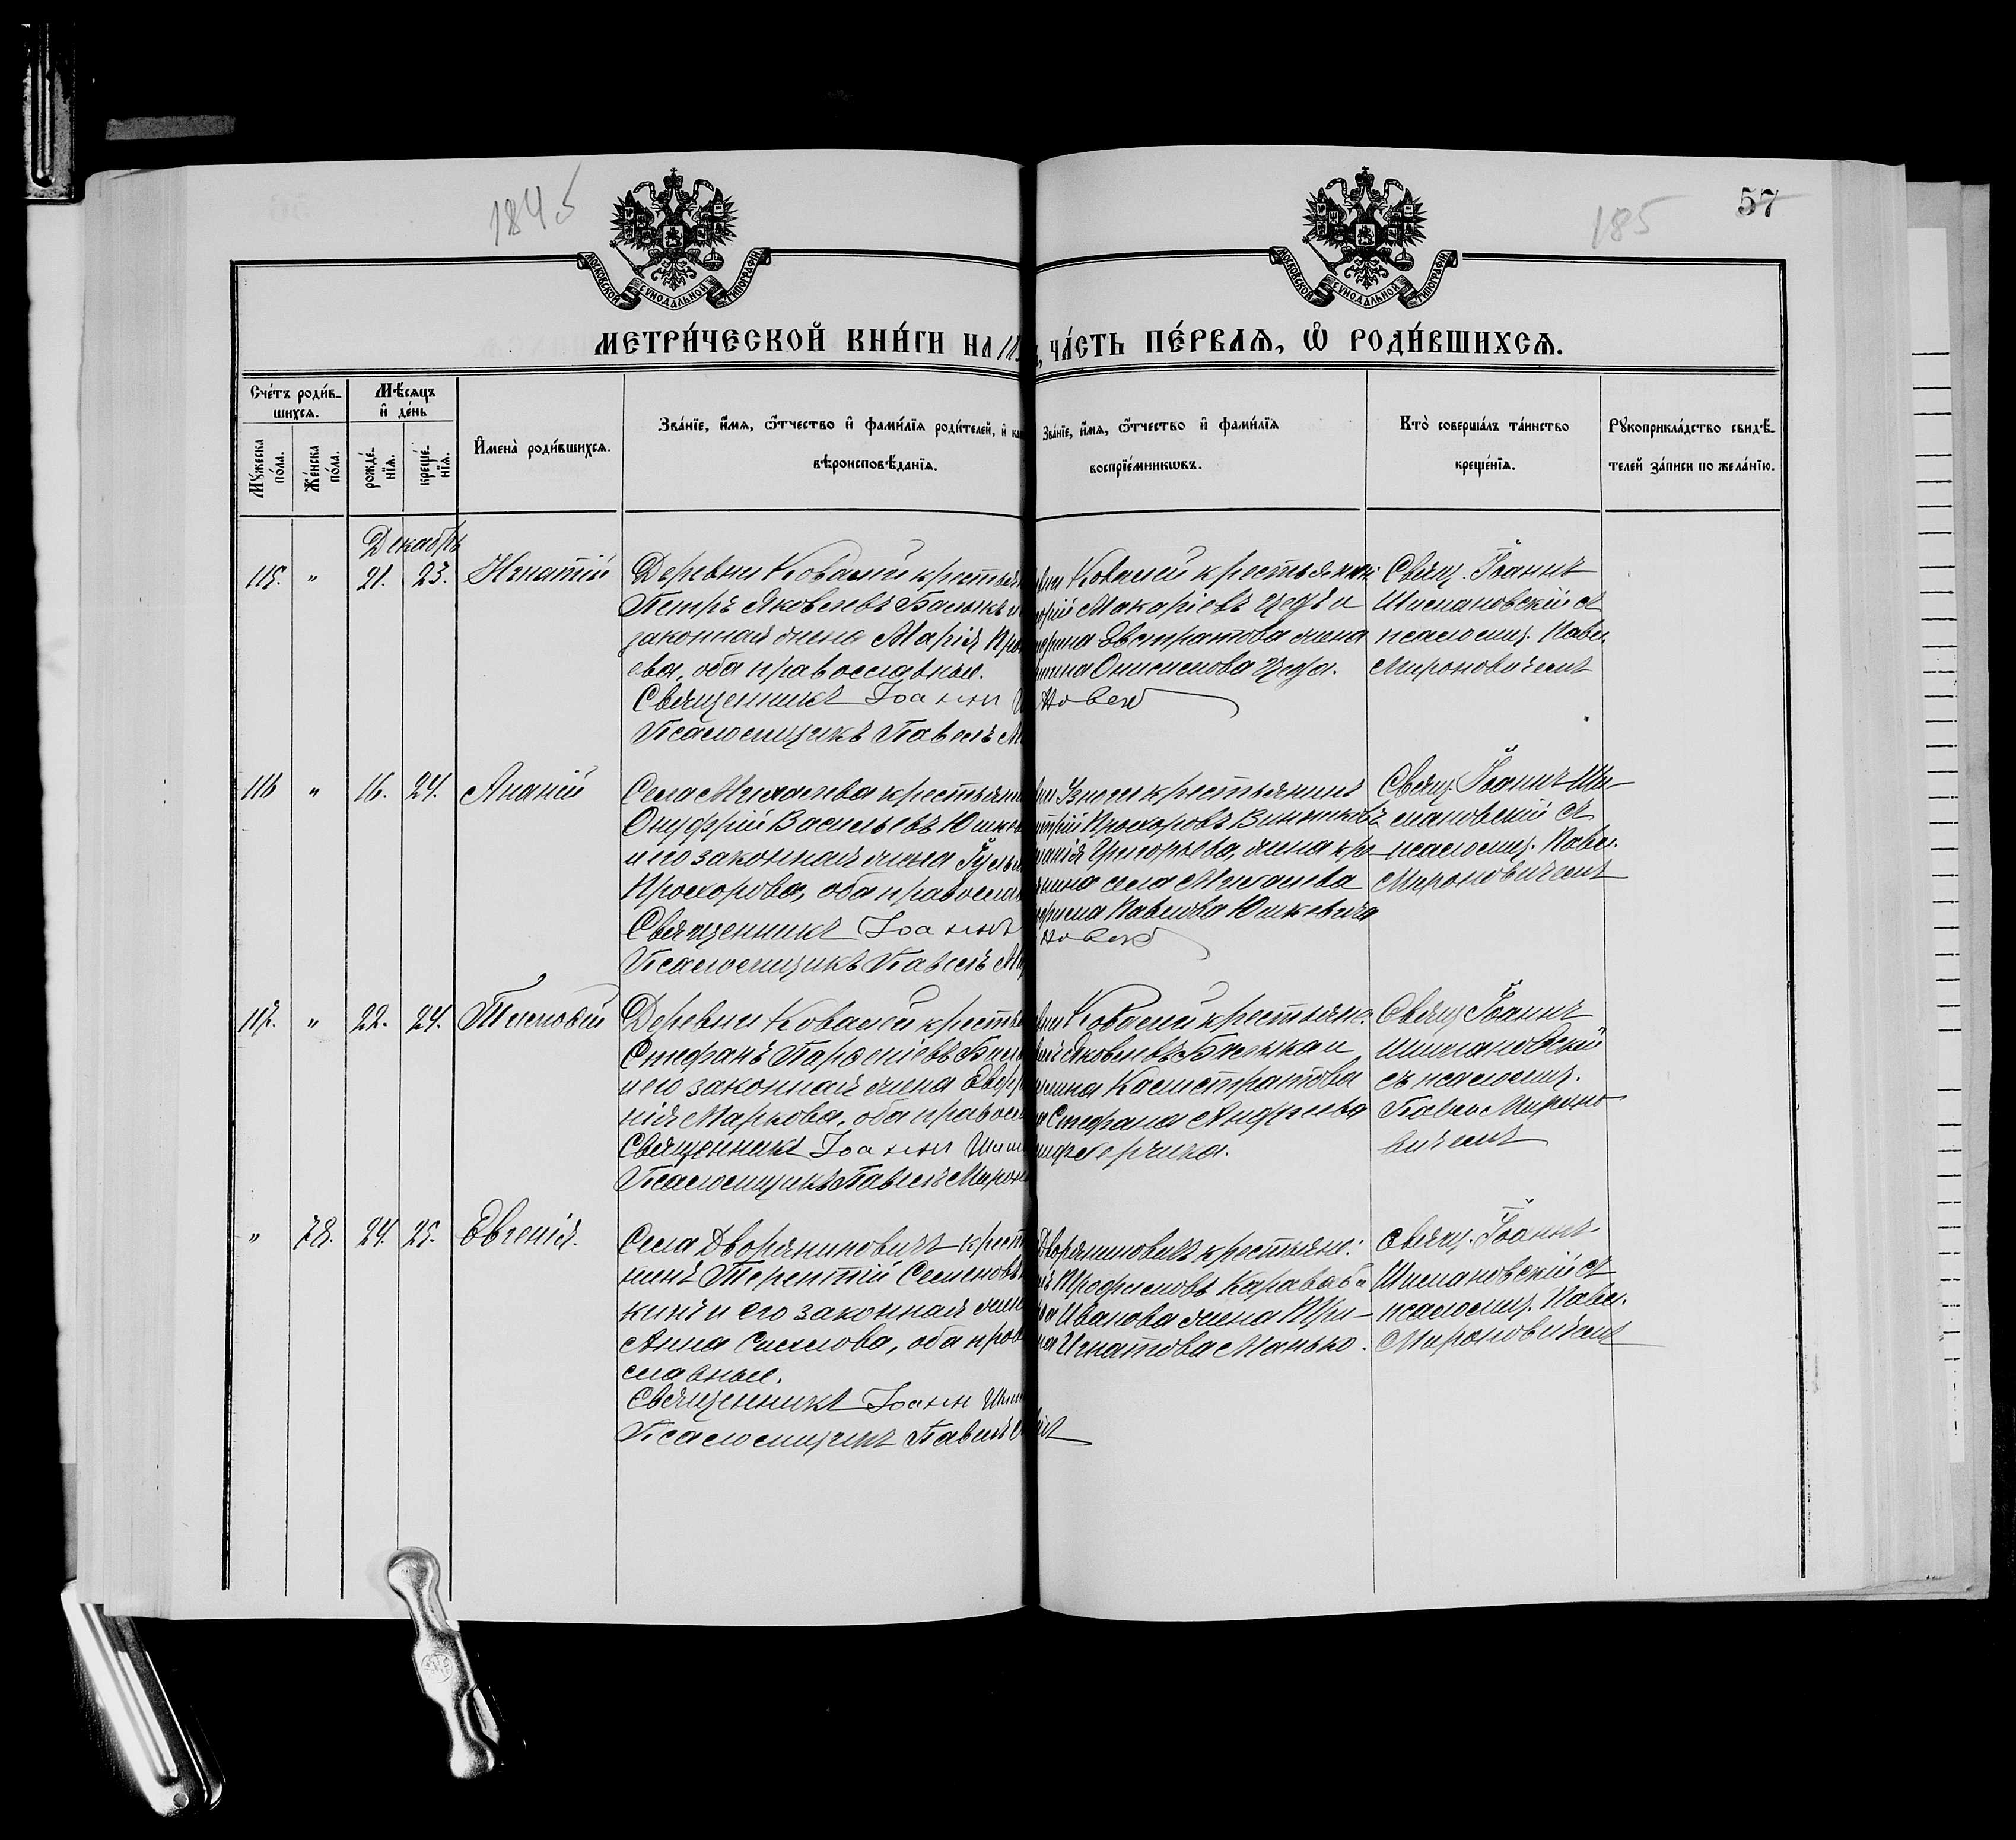 1845
185
57
МОСКОВСКОЙ СѴНОДАЛЬНОЙ ТИПОГРАФІИ
МОСКОВСКОЙ СѴНОДАЛЬНОЙ ТИПОГРАФІИ
МЕТРИ́ЧЕСКОЙ КНИ́ГИ НА 18
ЧА́СТЬ ПЕ́РВАѦ, Ѡ҆ РОДИ́ВШИХСѦ.
Сче́тъ роди́в-
шихсѧ.
Мѣ́сѧцъ
и҆ де́нь
Мꙋ́жеска по́ла.
Же́нска по́ла.
рожде́-
нїѧ.
креще́-
нїѧ.
И҆мена̀ роди́вшихсѧ.
Зва́нїе, и҆́мѧ, ѻ҆́тчество и҆ фами́лїѧ роди́телей, и҆
вѣроисповѣ́данїѧ.
Зва́нїе, и҆́мѧ, ѻ҆́тчество и҆ фами́лїѧ
воспрїе́мникѡвъ.
Кто̀ соверша́лъ та́инство
креще́нїѧ.
Рꙋкоприкла́дство свидѣ́-
телей за́писи по жела́нїю.
Декабрь
115. " 21. 23. Игнатій
Деревни Ковалей крестьян
Петръ Яковлевъ Балыкъ и
законная жена Марія Про
ева, оба православные.
Священникъ Іоанн
Псаломщикъ Павелъ М
Ковалей крестьянин
Макаріевъ Цедъ и
Евстратова жена
Онисимова Цеда.
новск
Свящ. Іоаннъ
Шимановскій съ
псаломщ. Павл.
Мироновичемъ
116 " 16. 24. Ананій
Села Михалева крестьяни
Онуфрій Васильевъ Юшке
и его законная жена Гуль
Прохорова, оба правосла
Священникъ Іоаннъ
Псаломщикъ Павелъ Ми
крестьянинъ
Прохоровъ
Григорьева, жена кре-
села Михалева
Павлова Юшкевича
новск
Свящ. Іоаннъ Ши-
мановскій съ
псаломщ. Павл.
Мироновичемъ
117. " 22. 24. Тимофей
Деревни Ковалей кресть
Стефанъ
и его законная жена Евфр
нія Маркова, оба правосл
Священникъ Іоанн Шим
Псаломщикъ Павелъ Мирон
Ковалей крестьян.
Яковлевъ Балыка и
Калистратова
Стефана Андреева
Свящ Іоаннъ
Шимановскій
съ псаломщ.
Павл Мироно-
вичемъ
" 78. 24. 25. Евгенія.
Села Дворяниновичъ крест
нинъ Терентій Семеновъ
кинъ и его законная жен
Анна оба право
славные.
Священникъ Іоанн Шим
Псаломщикъ Павелъ
Дворяниновичъ крестьяне:
Трофимовъ
Иванова жена Три-
Игнатова Манько.
Свящ. Іоаннъ
Шимановскій съ
псаломщ. Павл.
Мироновичемъ